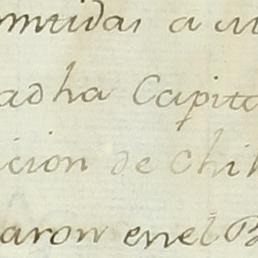 mitidas a
adha Capita
icion de Chil
aron enel B